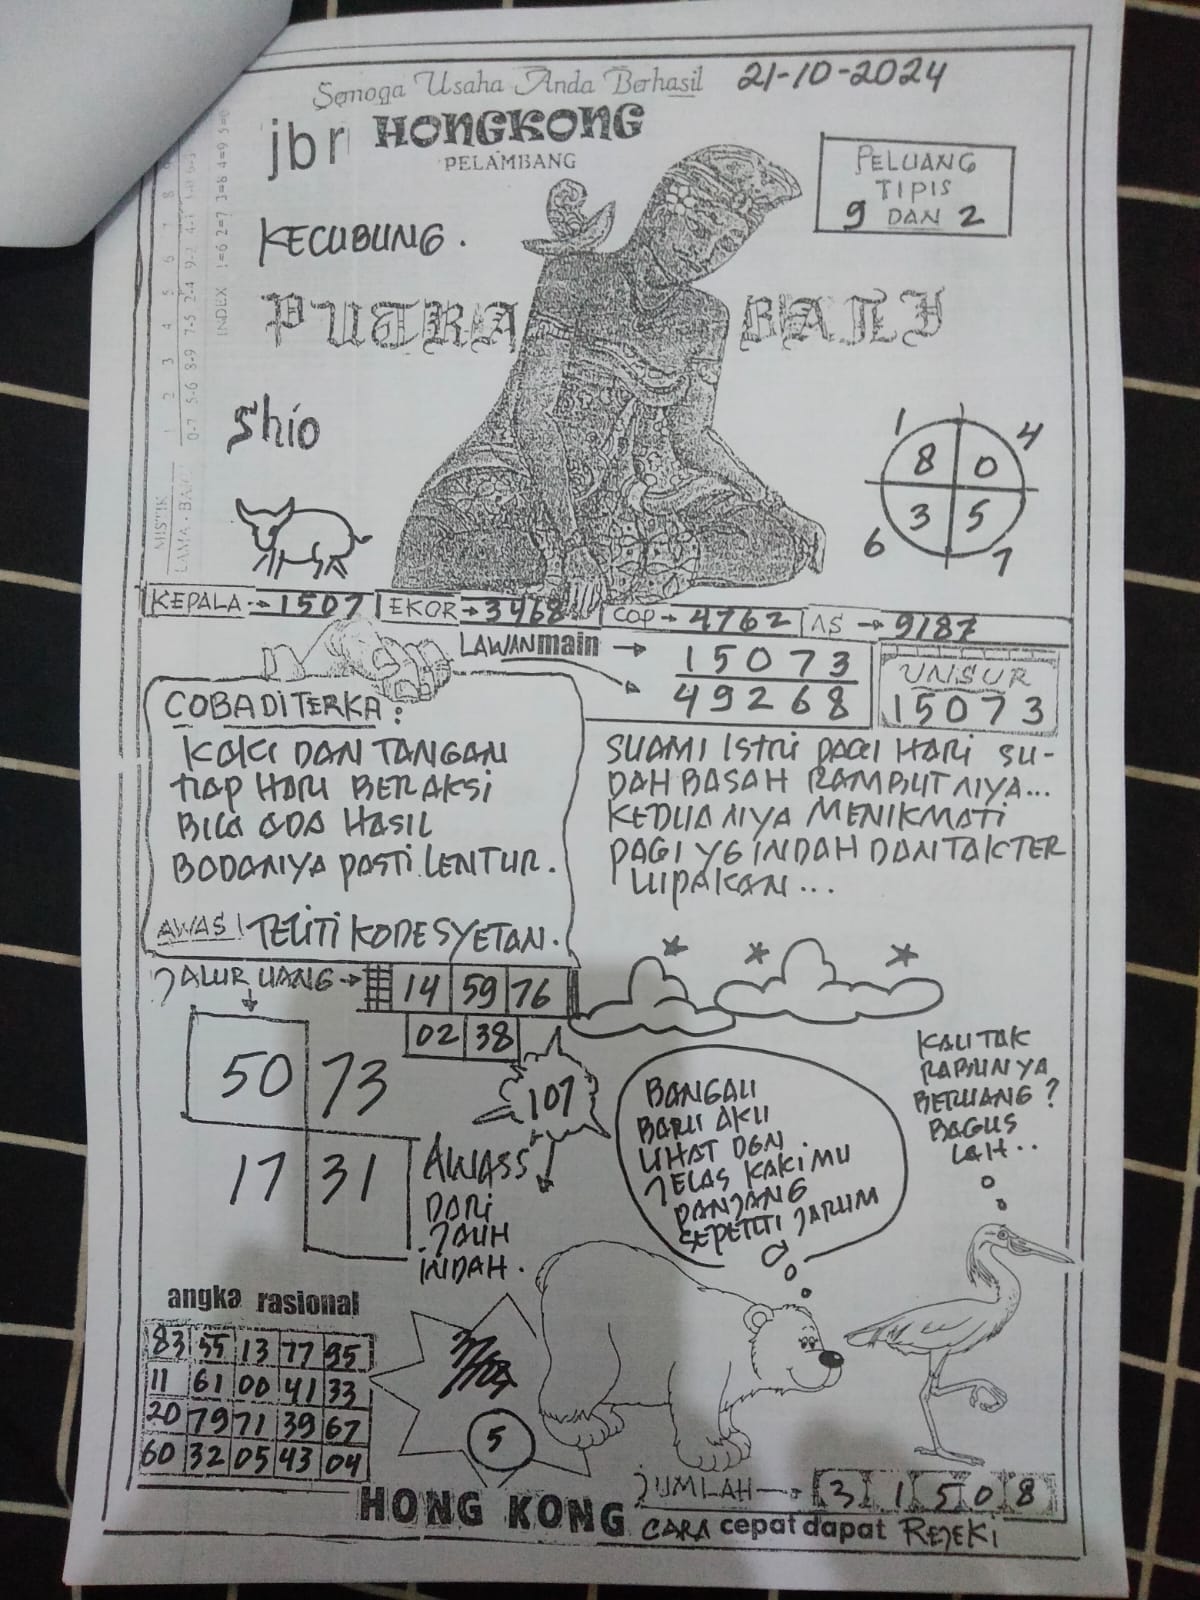 Semoga Usaha Anda Berhasil
21-10-2024
jbr HONGKONG
PELAMBANG
PELUANG
TIPIS
9 DAN 2
KECUBUNG.
PUTRA BALI
Shio
INDEX 1=6 2=7 3=8 4=9 5=0
MISTIK
LAMA - BARU
1 8 0 4
6 3 5 7
KEPALA → 1507
EKOR → 3468
COP → 4762
AS → 9187
LAWAN main →
15073
49268
UNSUR
15073
COBA DITERKA:
KAKI DAN TANGAN
TIAP HARI BERAKSI
BILA ADA HASIL
BADANNYA PASTI LENTUR.
AWAS! TELITI KODE SYETAN.
SUAMI ISTRI PAGI HARI SU-
DAH BASAH RAMBUTNYA...
KEDUANYA MENIKMATI
PAGI YG INDAH DAN TAK TER
LUPAKAN...
JALUR UANG →
14 59 76
02 38
50 73
17 31
107
AWASS
DARI
JAUH
INDAH.
BANGAU
BARU AKU
LIHAT DGN
JELAS KAKIMU
PANJANG
SEPERTI JARUM
KAU TAK
RABUN YA
BERUANG?
BAGUS
LAH..
angka rasional
83 55 13 77 95
11 61 00 41 33
20 79 71 39 67
60 32 05 43 04
5
JUMLAH → 3 1 5 0 8
HONG KONG
CARA cepat dapat REJEKI